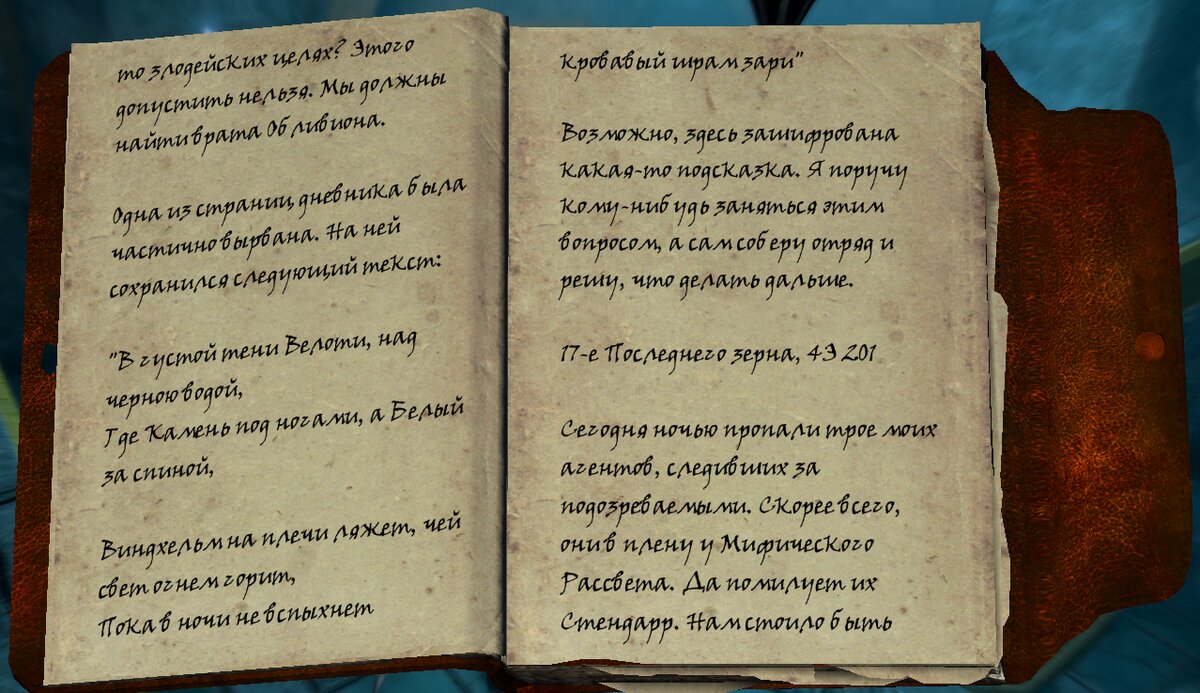 то злодейских целях? Этого
допустить нельзя. Мы должны
найти врата Обливиона.
Одна из страниц дневника была
частично вырвана. На ней
сохранился следующий текст:
"В густой тени Велоти, над
черною водой,
Где Камень под ногами, а Белый
за спиной,
Виндхельм на плечи ляжет, чей
свет огнем горит,
Пока в ночи не вспыхнет
Кровавый шрам зари"
Возможно, здесь зашифрована
какая-то подсказка. Я поручу
кому-нибудь заняться этим
вопросом, а сам соберу отряд и
решу, что делать дальше.
17-е Последнего зерна, 4Э 201
Сегодня ночью пропали трое моих
агентов, следивших за
подозреваемыми. Скорее всего,
они в плену у Мифического
Рассвета. Да помилует их
Стендарр. Нам стоило быть